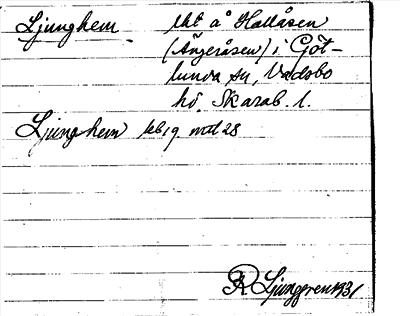 Ljunghem lht å Hallåsen
(Ängeråsen) i Göt-
lunda sn, Vadsbo
hd. Skarab. l.
Ljunghem kb 19 md 28
R Ljunggren 1931